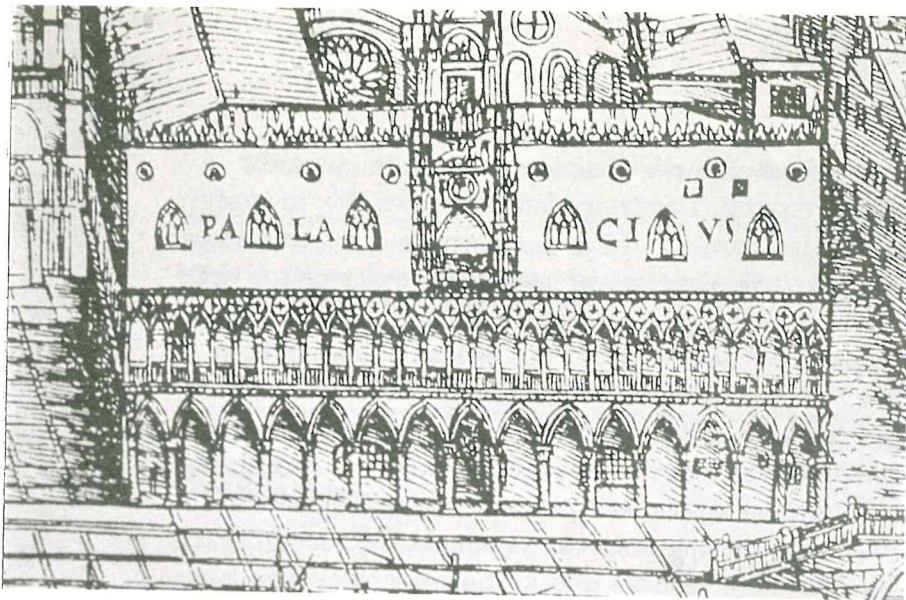 PA LA CI VS